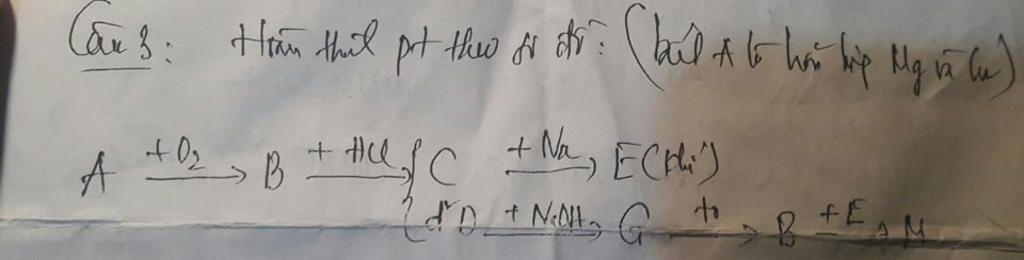 Câu 3: Hoàn thành pt theo sơ đồ: (biết A là hỗn hợp Mg và Cu)
A +O2 → B + HCl → { C + Na → E (khí)
{ d² D + NaOH → G to → B + E → M